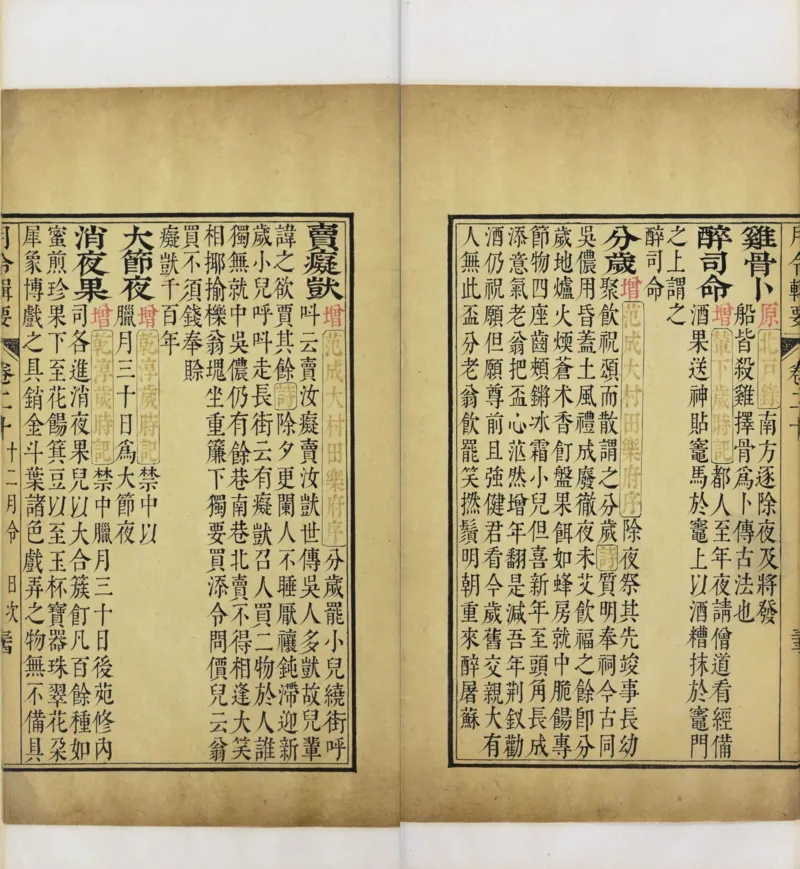 月令輯要 卷二十
雞骨卜 原 北戸錄 南方逐除夜及將發
船皆殺雞擇骨爲卜傳古法也
醉司命 增 輦下歲時記 都人至年夜請僧道看經備
酒果送神貼竈馬於竈上以酒糟抹於竈門
之上謂之
醉司命
分歲 增 范成大村田樂府序 除夜祭其先竣事長幼
聚飲祝頌而散謂之分歲 詩 質明奉祠今古同
吳儂用昏蓋土風禮成廢徹夜未艾飲福之餘卽分
歲地爐火煖蒼术香飣盤果餌如蜂房就中脆餳專
節物四座齒頰鏘冰霜小兒但喜新年至頭角長成
添意氣老翁把盃心茫然增年翻是減吾年荆釵勸
酒仍祝願但願尊前且強健君看今歲舊交親大有
人無此盃分老翁飲罷笑撚鬚明朝重來醉屠蘇
賣癡獃 增 范成大村田樂府序 分歲罷小兒繞街呼
呌云賣汝癡賣汝獃世傳吳人多獃故兒輩
諱之欲賈其餘 詩 除夕更闌人不睡厭禳鈍滯迎新
歲小兒呼呌走長街云有癡獃召人買二物於人誰
獨無就中吳儂仍有餘巷南巷北賣不得相逢大笑
相揶揄櫟翁塊坐重簾下獨要買添令問價兒云翁
買不須錢奉賒
癡獃千百年
大節夜 增 乾淳歲時記 禁中以
臘月三十日爲大節夜
消夜果 增 乾淳歲時記 禁中臘月三十日後苑修內
司各進消夜果兒以大合簇飣凡百餘種如
蜜煎珍果下至花餳箕豆以至玉杯寶器珠翠花朶
犀象博戲之具銷金斗葉諸色戲弄之物無不備具
月令輯要 卷二十 十二月令 日次